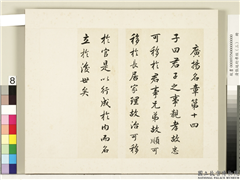 廣揚名章第十四
子曰君子之事親孝故忠
可移於君事兄弟故順可
移於長居家理故治可移
於官是以行成於内而名
立於後世矣
8